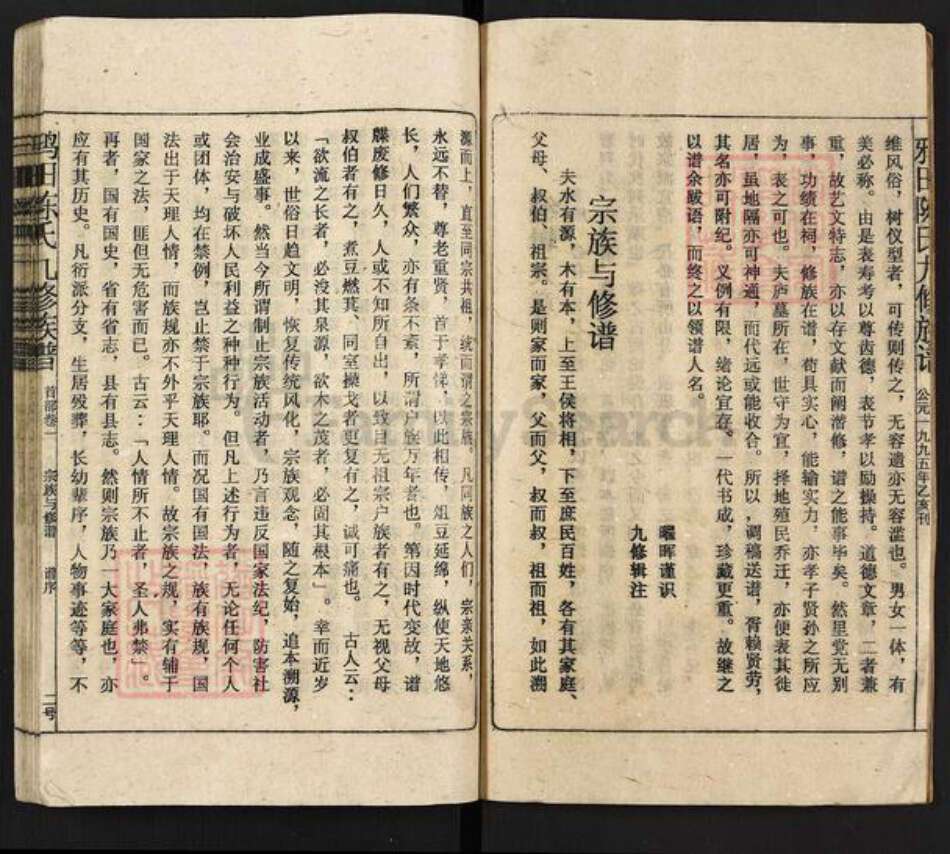 鸦田陈氏九修族谱
公元一九九五年乙亥刊
维风俗，树仪型者，可传则传之，无容遗亦无容滥也。男女一体，有
美必称。由是表寿考以尊齿德，表节孝以励操持。道德文章，二者兼
重，故艺文特志，亦以存文献而阐潜修，谱之能事毕矣。然里党无别
事，功绩在祠，修族在谱，苟具实心，能输实力，亦孝子贤孙之所应
为，表之可也。夫庐墓所在，世守为宜，择地殖民乔迁，亦便表其徙
居，虽地隔亦可神通，而代远或能收合。所以，调稿送谱，胥赖贤劳，
其名亦可附纪。又例有限，绪论宜存。一代书成，珍藏更重。故继之
以谱余跋语，而终之以领谱人名。
曜晖谨识
九修辑注
宗族与修谱
夫水有源，木有本，上至王侯将相，下至庶民百姓，各有其家庭、
父母、叔伯、祖宗。是则家而家，父而父，叔而叔，祖而祖，如此溯
源而上，直至同宗共祖，统而谓之宗族。凡同族之人们，宗亲关系，
永远不替，尊老重贤，首于孝悌，以此相传，俎豆延绵，纵使天地悠
长，人们繁众，亦有条不紊，所谓户族万年者也。第因时代变故，谱
牒废修日久，人或不知所自出，以致目无祖宗户族者有之，无视父母
叔伯者有之，煮豆燃萁、同室操戈者更复有之，诚可痛也。 古人云：
「欲流之长者，必没其泉源，欲木之茂者，必固其根本」。幸而近岁
以来，世俗日趋文明，恢复传统风化，宗族观念，随之复始，追本溯源，
业成盛事。然当今所谓制止宗族活动者，乃言违反国家法纪，防害社
会治安与破坏人民利益之种种行为。但凡上述行为者，无论任何个人
或团体，均在禁例，岂止禁于宗族耶。而况国有国法，族有族规，国
法出于天理人情，而族规亦不外乎天理人情。故宗族之规，实有辅于
国家之法，匪但无危害而已。古云：「人情所不止者，圣人弗禁」。
再者，国有国史，省有省志，县有县志。然则宗族乃一大家庭也，亦
应有其历史。凡衍派分支，生居殁葬，长幼辈序，人物事迹等等，不
鸦田陈氏九修族谱
首部卷一
宗族与修谱
谱序
二号
FamilySearch